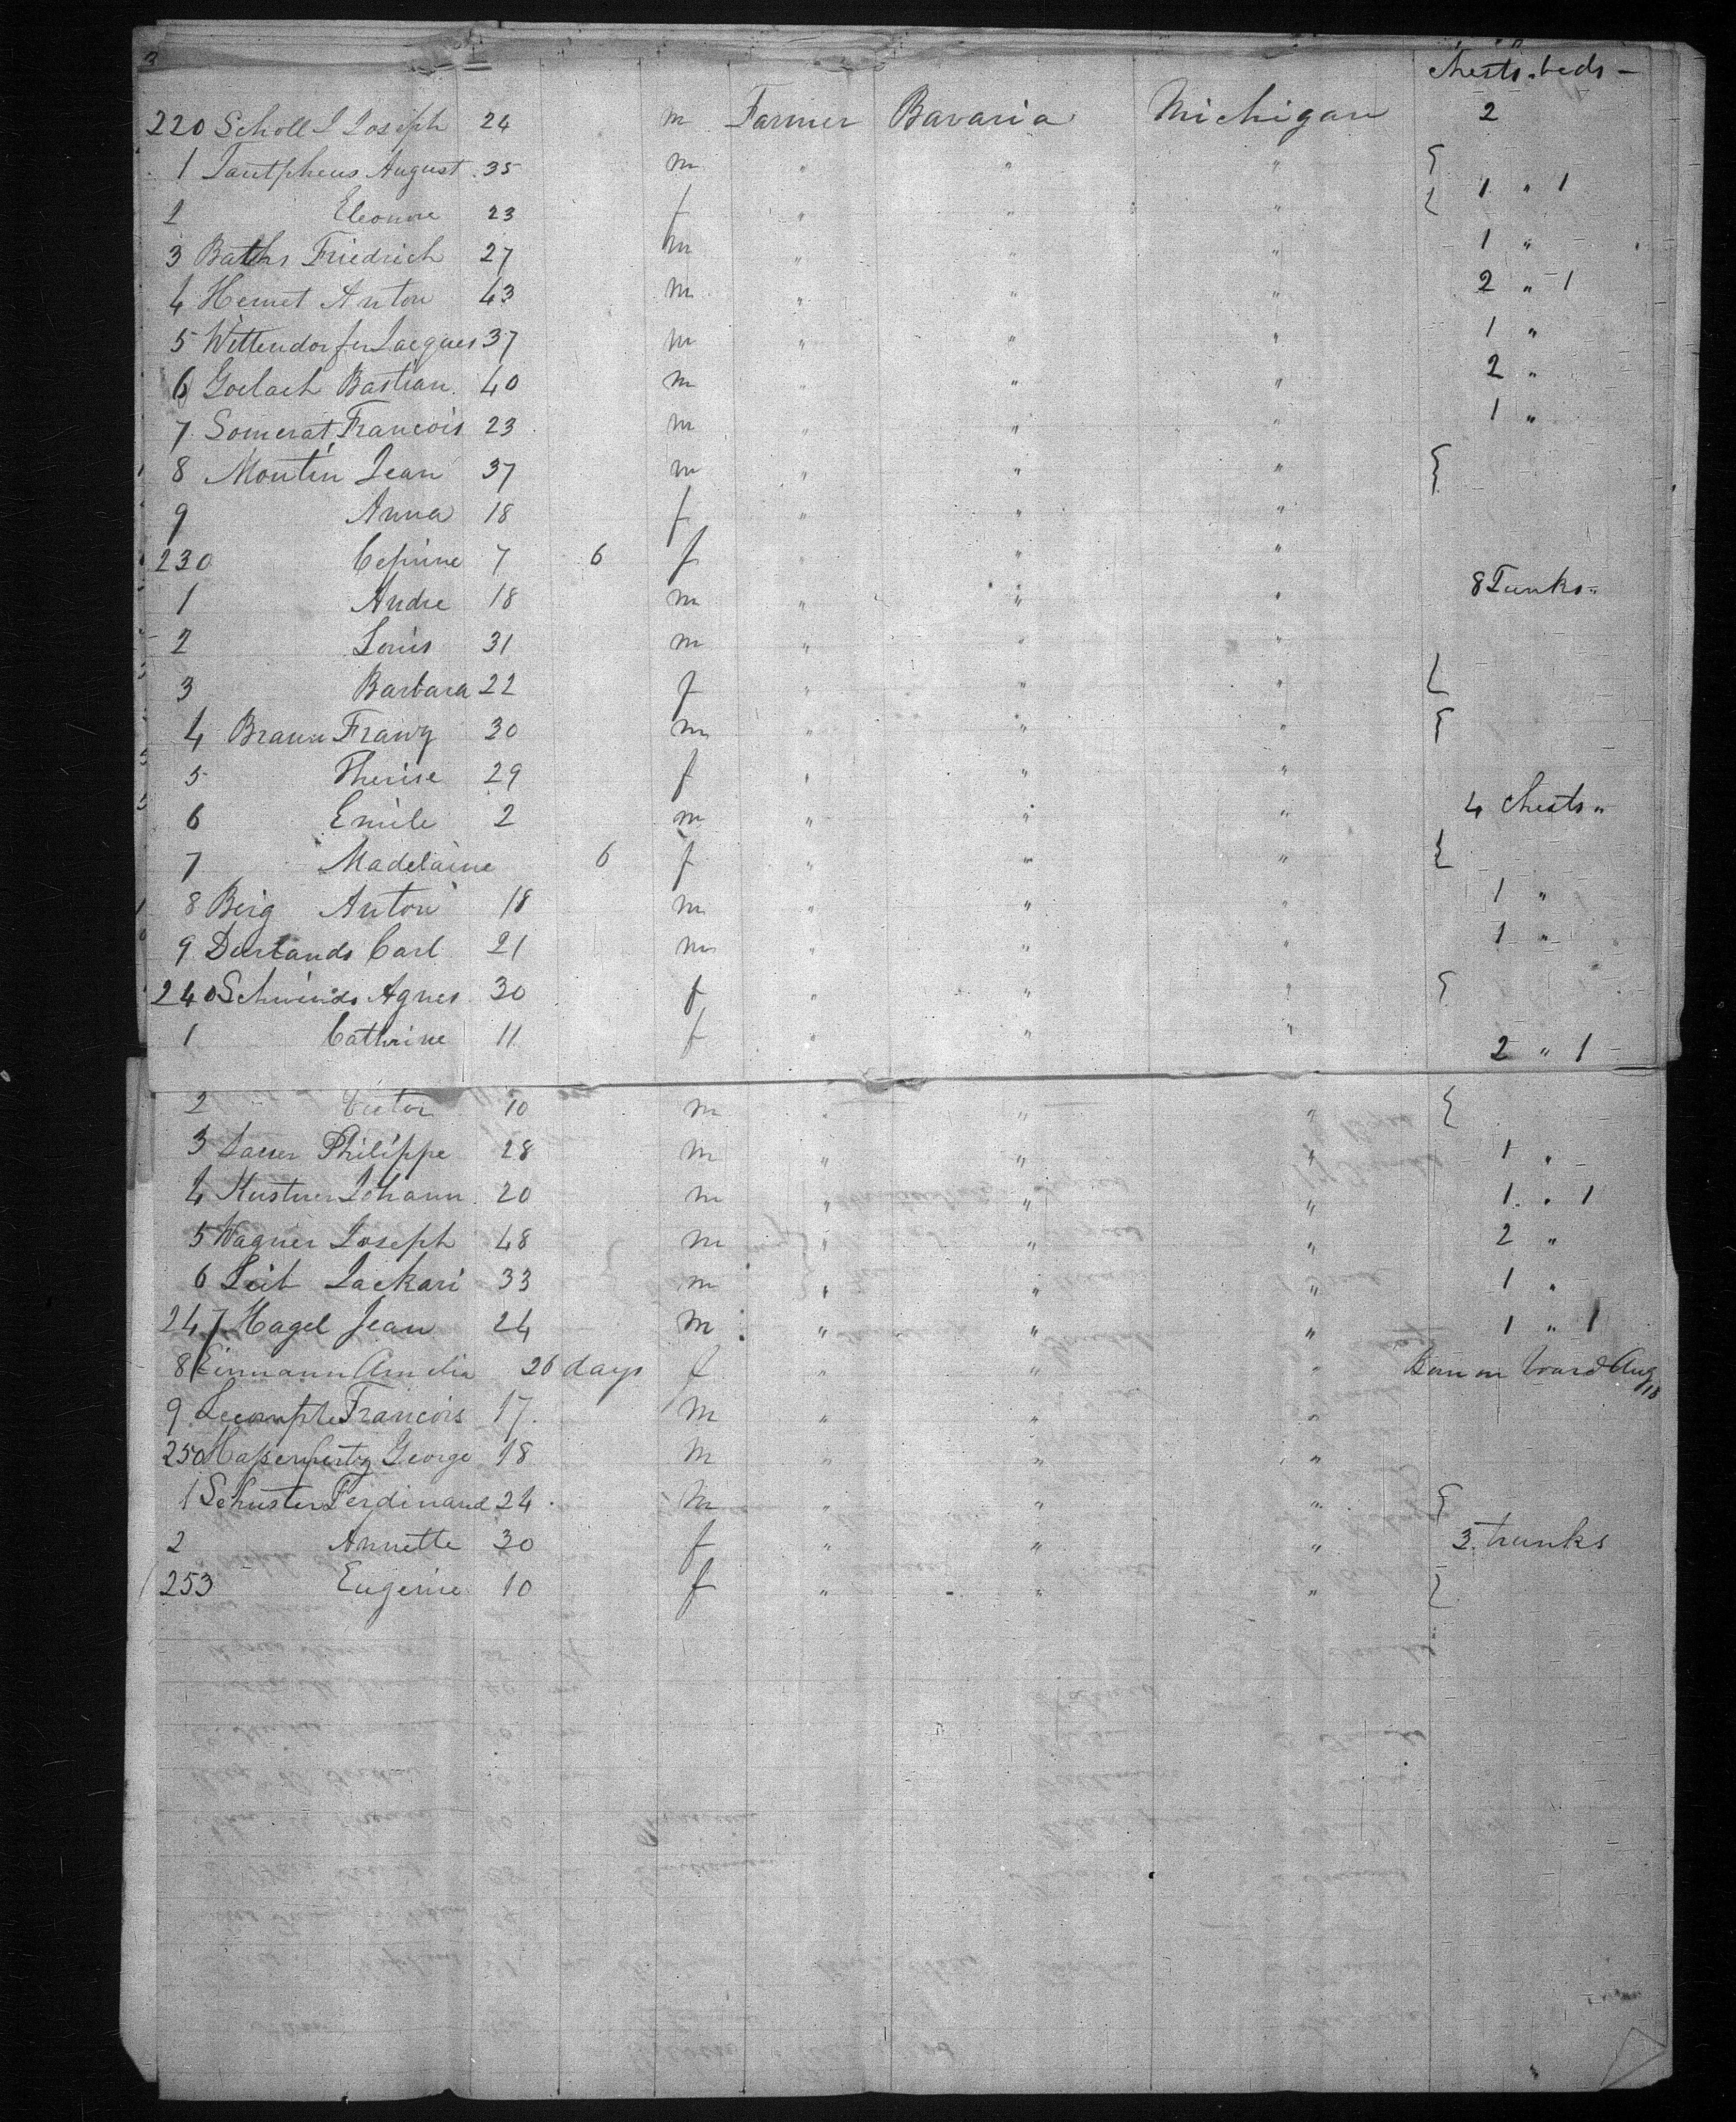 Chests. beds -
220 Scholl J Joseph 24 m Farmer Bavaria Michigan 2
1 Tautpheus August 35 m " " "
2 Eleonore 23 f " " " 1 " 1
3 Baths Friedrich 27 m " " " 1 "
4 Hemet Anton 43 m " " " 2 " 1
5 Wittendorfer Jacques 37 m " " " 1 "
6 Goelach Bastian 40 m " " " 2 "
7 Somerat Francois 23 m " " " 1 "
8 Moutin Jean 37 m " " "
9 Anna 18 f " " "
230 7 6 f " " "
1 Andre 18 m " " " 8 Tunks "
2 Louis 31 m " " "
3 Barbara 22 f " " "
4 Braun Franz 30 m " " "
5 Therise 29 f " " "
6 Emile 2 m " " " 4 Chests "
7 Madelaine 6 f " " "
8 Berg Anton 18 m " " " 1 "
9 Carl 21 m " " " 1 "
240 Schwinds Agnes 30 f " " "
1 Cathrine 11 f " " " 2 " 1
2 Victor 10 m " " "
3 Lauer Philippe 28 m " " " 1 "
4 Kustner Johann 20 m " " " 1 " 1
5 Wagner Joseph 48 m " " " 2 "
6 Leib Zackari 33 m " " " 1 "
247 Hagel Jean 24 m " " " 1 " 1
8 Einmann Amelia 26 days f " " " Born on board Aug 18
9 Lecompte Francois 17 m " " "
250 George 18 m " " "
1 Schuster Ferdinand 24 m " " "
2 Annette 30 f " " " 3 trunks
253 Eugenie 10 f " " "